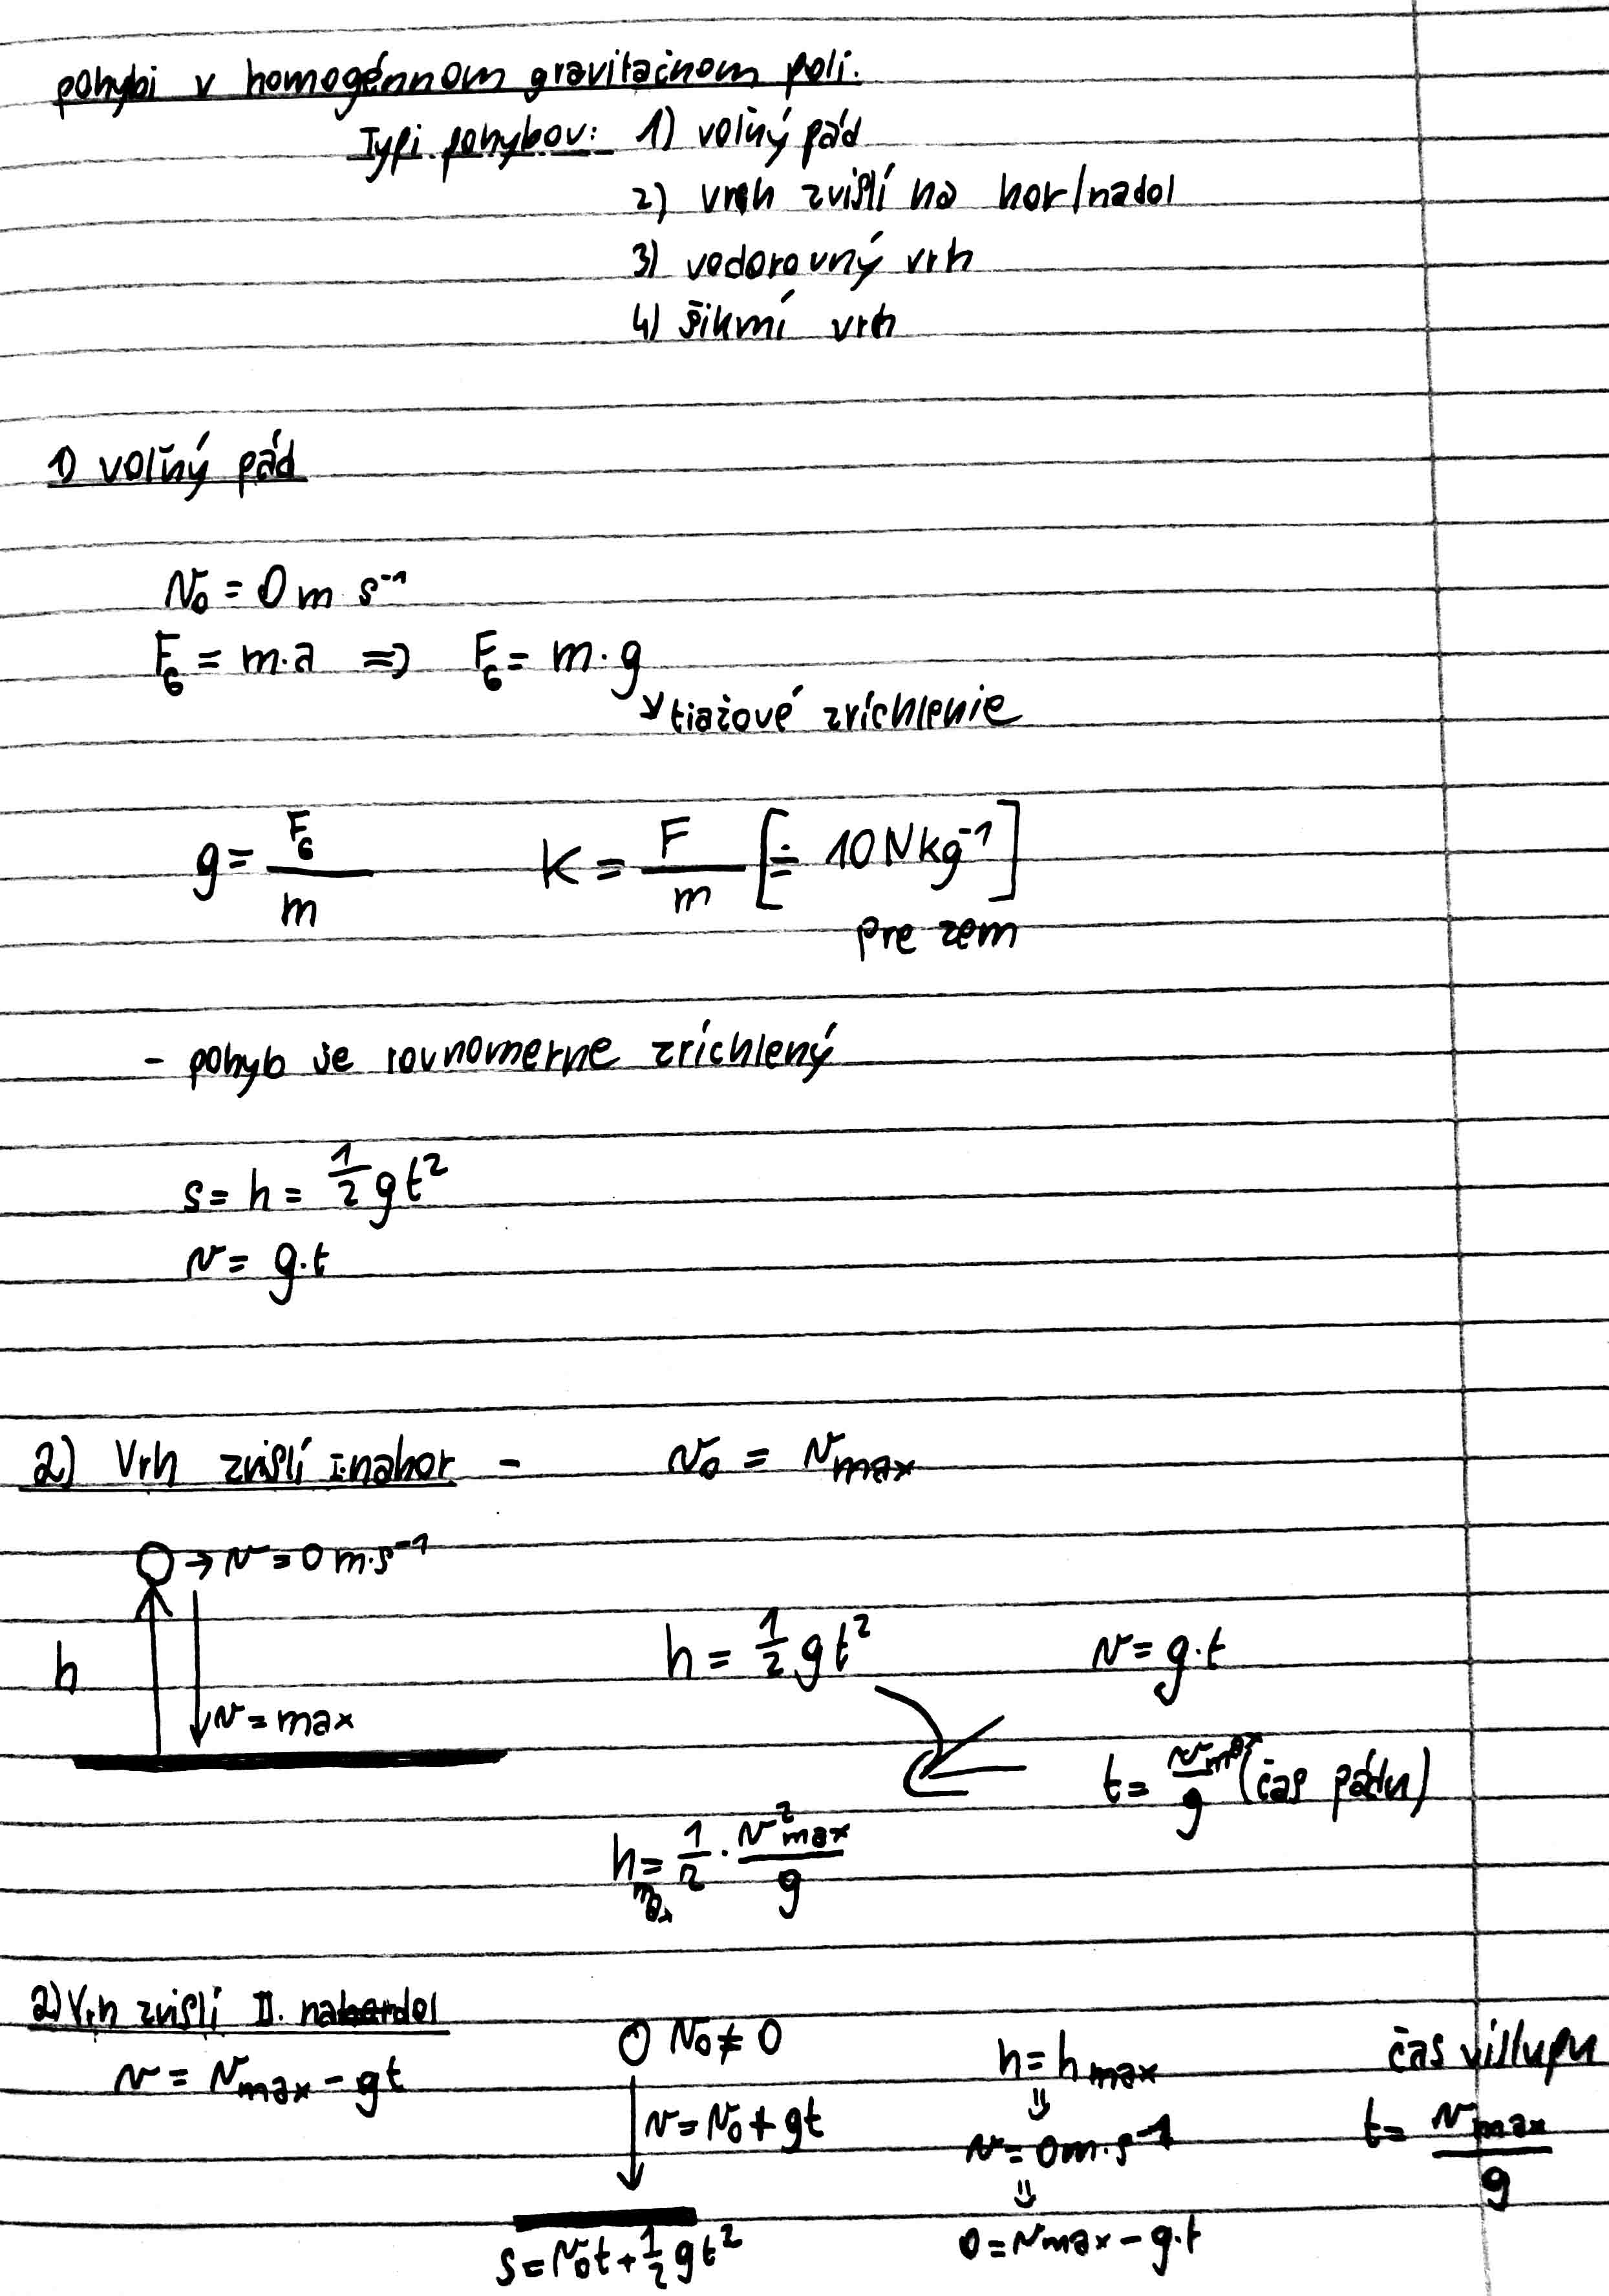 pohybi v homogénnom gravitačnom poli.
Typi pohybov: 1) voľný pád
2) vrh zvislí na hor/nadol
3) vodorovný vrh
4) šikmí vrh
1) voľný pád
v₀ = 0 m s⁻¹
F_G = m·a ⇒ F_G = m·g
↘ tiažové zrichlenie
g = F_G/m K = F/m [≐ 10 N kg⁻¹]
pre zem
- pohyb je rovnomerne zrichlený
s = h = 1/2 gt²
v = g·t
2) Vrh zvislí I. nahor - v₀ = v_max
→ v = 0 m·s⁻¹
h = 1/2 gt² v = g·t
h
v = max
t = v_max/g (čas pádu)
h_max = 1/2 · v²_max/g
2) Vrh zvislí II. nadol
v = v_max - gt
v₀ ≠ 0 h = h_max čas vistupu
⇓
v = v₀ + gt v = 0 m·s⁻¹ t = v_max/g
⇓
s = v₀t + 1/2 gt² 0 = v_max - g·t